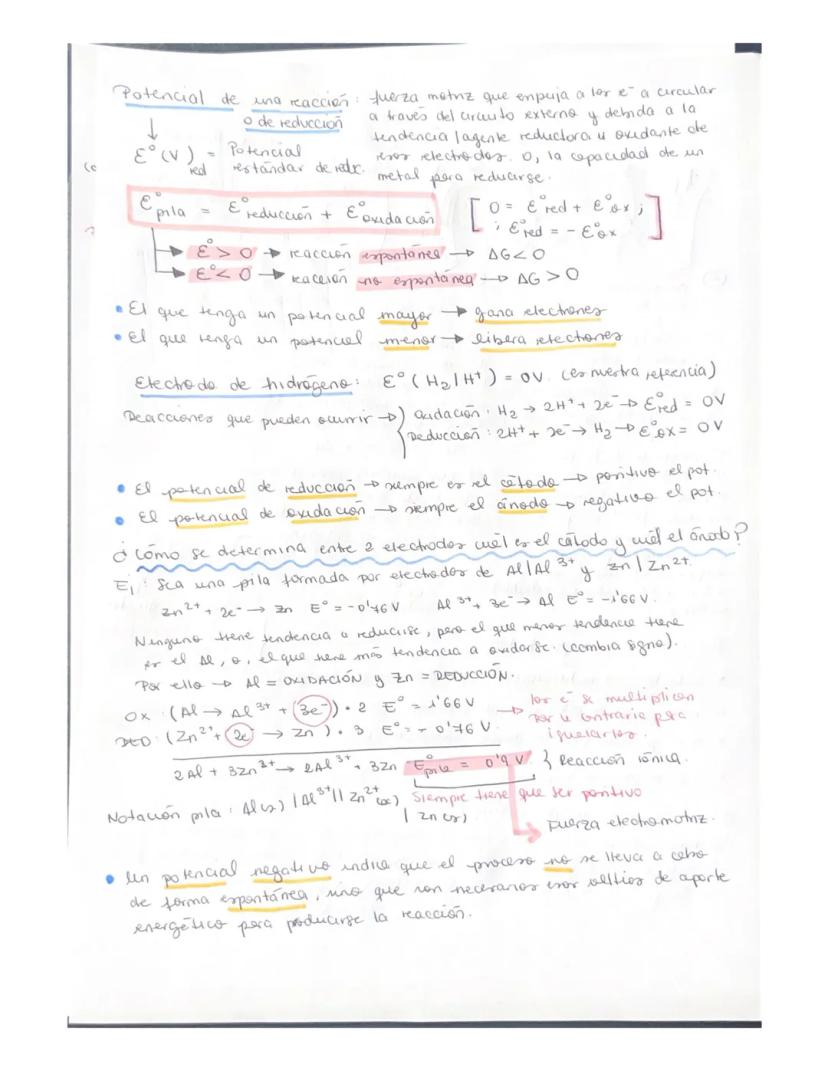 Potencial de una reacción: fuerza motriz que empuja a los e⁻ a circular
o de reducción a través del circuito externo y debida a la
↓ tendencia/agente reductora u oxidante de
E°(V)red = Potencial esos electrodos. O, la capacidad de un
estándar de redx. metal para reducirse.
E°pila = E°reducción + E°oxidación [0 = E°red + E°ox ;
; E°red = - E°ox]
→ E° > 0 → reacción espontánea → ΔG < 0
→ E° < 0 → reacción no espontánea → ΔG > 0
• El que tenga un potencial mayor → gana electrones
• El que tenga un potencial menor → libera electrones
Electrodo de hidrógeno: E° (H₂|H⁺) = 0V. (es nuestra referencia)
Reacciones que pueden ocurrir → oxidación: H₂ → 2H⁺ + 2e⁻ → E°red = 0V
Reducción: 2H⁺ + 2e⁻ → H₂ → E°ox = 0V
• El potencial de reducción → siempre es el cátodo → positivo el pot.
• El potencial de oxidación → siempre el ánodo → negativo el pot.
¿Cómo se determina entre 2 electrodos cuál es el cátodo y cuál el ánodo?
Ej: Sea una pila formada por electrodos de Al|Al³⁺ y Zn|Zn²⁺
Zn²⁺ + 2e⁻ → Zn E° = -0'76 V Al³⁺ + 3e⁻ → Al E° = -1'66 V.
Ninguno tiene tendencia a reducirse, pero el que menor tendencia tiene
es el Al, o, el que tiene más tendencia a oxidarse. (cambia signo).
Por ello → Al = OXIDACIÓN y Zn = REDUCCIÓN.
OX: (Al → Al³⁺ + 3e⁻) · 2 E° = 1'66 V → los e⁻ se multiplican
RED: (Zn²⁺ + 2e → Zn) · 3 E° = - 0'76 V. por u contrario para
igualarlos.
2Al + 3Zn²⁺ → 2Al³⁺ + 3Zn E°pila = 0'9 V } Reacción iónica.
Notación pila: Al(s) |Al³⁺|| Zn²⁺(ac) Siempre tiene que ser positivo
| Zn (s)
Fuerza electromotriz.
• Un potencial negativo indica que el proceso no se lleva a cabo
de forma espontánea, sino que son necesarios esos voltios de aporte
energético para producirse la reacción.